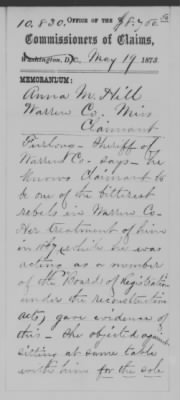 10,830. OFFICE OF THE $8,750 50
Commissioners of Claims,
Washington, D.C., May 19 1873
MEMORANDUM:
Anna M. Hill
Warren Co. Miss
Claimant
Furlong - Sheriff of
Warren Co. says - he
knows Claimant to
be one of the bitterest
rebels in Warren Co-
Her treatment of him
in 1867 while he was
acting as a member
of the Boards of Registration
under the reconstruction
acts, gave evidence of
this - she objected against
sitting at same table
with him for the sole